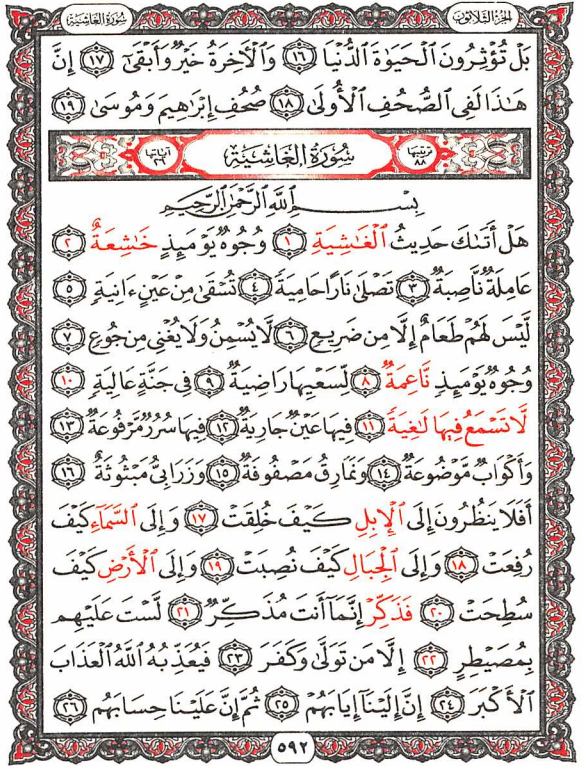 الجزء الثلاثون
سورة الغاشية
بَلْ تُؤْثِرُونَ ٱلْحَيَوٰةَ ٱلدُّنْيَا ١٦ وَٱلْأَخِرَةُ خَيْرٌ وَأَبْقَىٰٓ ١٧ إِنَّ
هَٰذَا لَفِى ٱلصُّحُفِ ٱلْأُولَىٰ ١٨ صُحُفِ إِبْرَٰهِيمَ وَمُوسَىٰ ١٩
ترتيبها ٨٨
سُورَةُ الْغَاشِيَةِ
آياتها ٢٦
بِسْمِ ٱللَّهِ ٱلرَّحْمَٰنِ ٱلرَّحِيمِ
هَلْ أَتَىٰكَ حَدِيثُ ٱلْغَٰشِيَةِ ١ وُجُوهٌ يَوْمَئِذٍ خَٰشِعَةٌ ٢
عَامِلَةٌ نَّاصِبَةٌ ٣ تَصْلَىٰ نَارًا حَامِيَةً ٤ تُسْقَىٰ مِنْ عَيْنٍ ءَانِيَةٍ ٥
لَّيْسَ لَهُمْ طَعَامٌ إِلَّا مِن ضَرِيعٍ ٦ لَّا يُسْمِنُ وَلَا يُغْنِى مِن جُوعٍ ٧
وُجُوهٌ يَوْمَئِذٍ نَّاعِمَةٌ ٨ لِّسَعْيِهَا رَاضِيَةٌ ٩ فِى جَنَّةٍ عَالِيَةٍ ١٠
لَّا تَسْمَعُ فِيهَا لَٰغِيَةً ١١ فِيهَا عَيْنٌ جَارِيَةٌ ١٢ فِيهَا سُرُرٌ مَّرْفُوعَةٌ ١٣
وَأَكْوَابٌ مَّوْضُوعَةٌ ١٤ وَنَمَارِقُ مَصْفُوفَةٌ ١٥ وَزَرَابِىُّ مَبْثُوثَةٌ ١٦
أَفَلَا يَنظُرُونَ إِلَى ٱلْإِبِلِ كَيْفَ خُلِقَتْ ١٧ وَإِلَى ٱلسَّمَآءِ كَيْفَ
رُفِعَتْ ١٨ وَإِلَى ٱلْجِبَالِ كَيْفَ نُصِبَتْ ١٩ وَإِلَى ٱلْأَرْضِ كَيْفَ
سُطِحَتْ ٢٠ فَذَكِّرْ إِنَّمَآ أَنتَ مُذَكِّرٌ ٢١ لَّسْتَ عَلَيْهِم
بِمُصَيْطِرٍ ٢٢ إِلَّا مَن تَوَلَّىٰ وَكَفَرَ ٢٣ فَيُعَذِّبُهُ ٱللَّهُ ٱلْعَذَابَ
ٱلْأَكْبَرَ ٢٤ إِنَّ إِلَيْنَآ إِيَابَهُمْ ٢٥ ثُمَّ إِنَّ عَلَيْنَا حِسَابَهُم ٢٦
٥٩٢